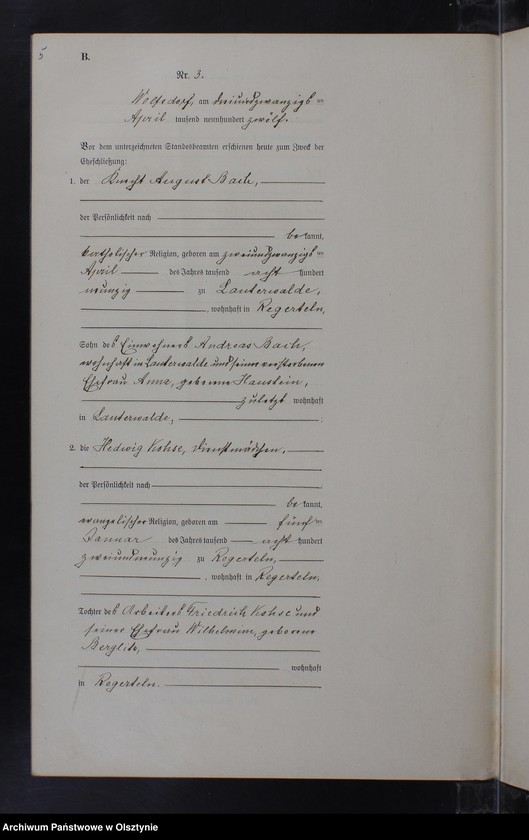 5
B.
Nr. 3.
Wolfsdorf, am dreiundzwanzigsten
April tausend neunhundert zwölf.
Vor dem unterzeichneten Standesbeamten erschienen heute zum Zweck der
Eheschließung:
1. der Knecht August Bach,
der Persönlichkeit nach
bekannt,
katholischer Religion, geboren am zweiundzwanzigsten
April des Jahres tausend acht hundert
neunzig zu Lauterwalde,
, wohnhaft in Regerteln,
Sohn des Einwohners Andreas Bach,
wohnhaft in Lauterwalde und seiner verstorbenen
Ehefrau Anna, geborene Haustein,
zuletzt wohnhaft
in Lauterwalde, ;
2. die Hedwig Kohse, Dienstmädchen,
der Persönlichkeit nach
bekannt,
evangelischer Religion, geboren am fünften
Januar des Jahres tausend acht hundert
zweiundneunzig zu Regerteln,
, wohnhaft in Regerteln,
Tochter des Arbeiters Friedrich Kohse und
seiner Ehefrau Wilhelmine, geborene
wohnhaft
in Regerteln.
Archiwum Państwowe w Olsztynie